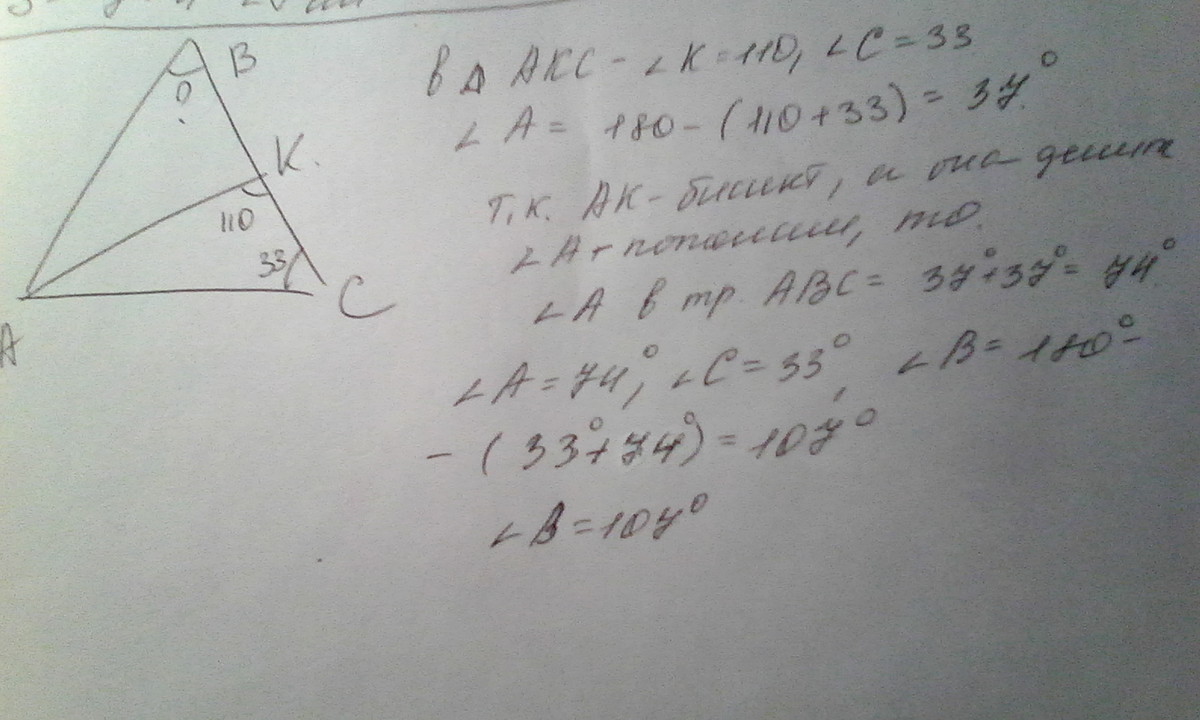 B
?
K.
110
33
C
A
В Δ АКС - ∠K=110, ∠C=33
∠A= 180-(110+33)=37°
т.к. АК-бисект, а она делит
∠A пополам, то.
∠A в тр. ABC= 37°+37°= 74°
∠A=74°, ∠C=33°, ∠B=180°-
-(33°+74°)=107°
∠B=107°